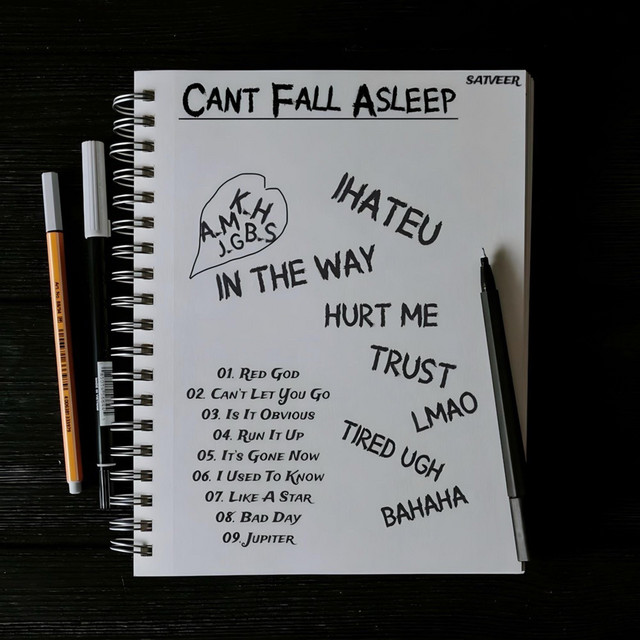 SATVEER
CANT FALL ASLEEP
K.H
A.M
J.GB.S
IHATEU
IN THE WAY
HURT ME
TRUST
LMAO
TIRED UGH
BAHAHA
01. RED GOD
02. CAN'T LET YOU GO
03. IS IT OBVIOUS
04. RUN IT UP
05. IT'S GONE NOW
06. I USED TO KNOW
07. LIKE A STAR
08. BAD DAY
09. JUPITER